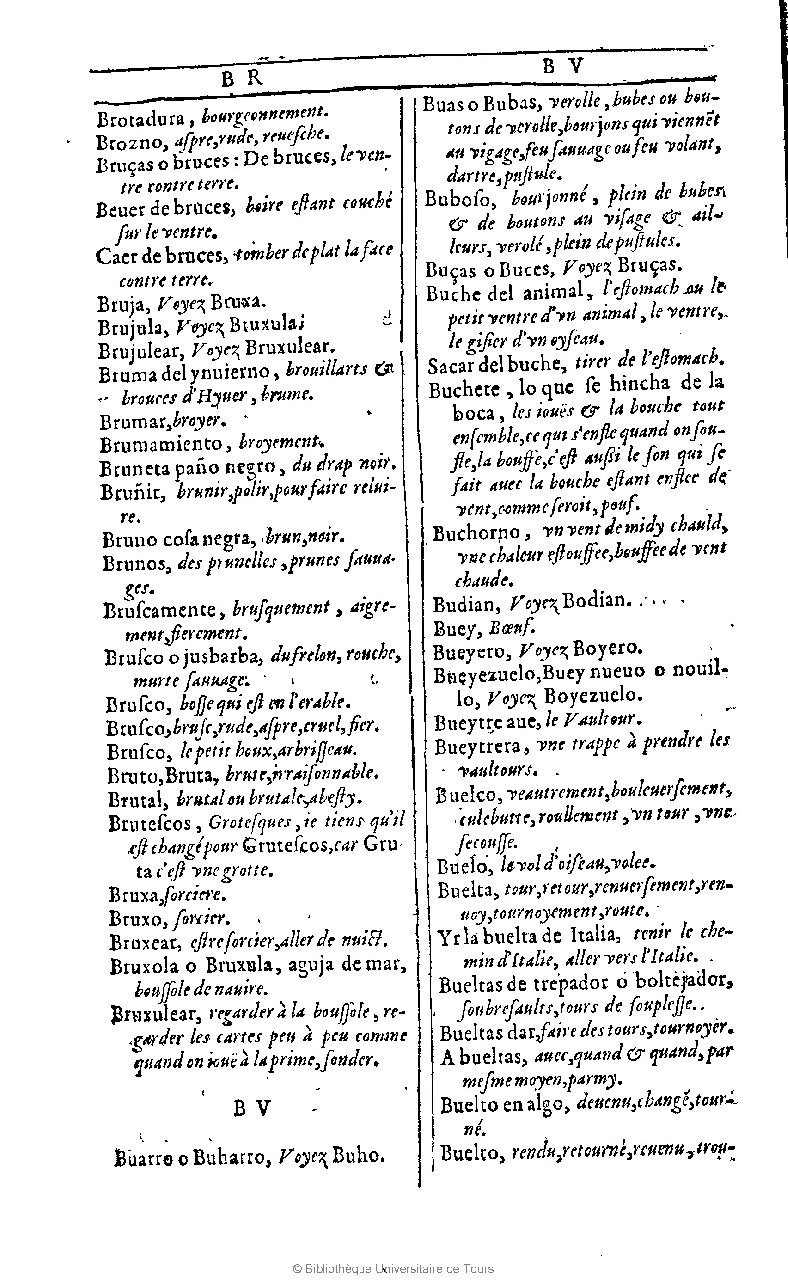 B R
Brotadura, bourgeonnement.
Brozno, aſpre, rude, reueſche.
Bruças o bruces : De bruces, le ven-
tre contre terre.
Beuer de bruces, boire eſtant couché
ſur le ventre.
Caer de bruces, tomber de plat la face
contre terre.
Bruja, Voyez Bruxa.
Brujula, Voyez Bruxula.
Brujulear, Voyez Bruxulear.
Bruma del ynuierno, brouillarts &
brouees d'Hyuer, brume.
Brumar, broyer.
Brumamiento, broyement.
Bruneta paño negro, du drap noir.
Bruñir, brunir, polir, pour faire relui-
re.
Bruno coſa negra, brun, noir.
Brunos, des prunelles, prunes ſauua-
ges.
Bruſcamente, bruſquement, aigre-
ment, fierement.
Bruſco o jusbarba, du frelon, rouche,
murte ſauuage.
Bruſco, boſſe qui eſt en l'erable.
Bruſco, bruſc, rude, aſpre, cruel, fier.
Bruſco, le petit houx, arbriſſeau.
Bruto, Bruta, brute, irraiſonnable.
Brutal, brutal ou brutale, abeſty.
Bruteſcos, Groteſques, ie tiens qu'il
eſt changé pour Gruteſcos, car Gru
ta c'eſt vne grotte.
Bruxa, ſorciere.
Bruxo, ſorcier.
Bruxear, eſtre ſorcier, aller de nuict.
Bruxola o Bruxula, aguja de mar,
bouſſole de nauire.
Bruxulear, regarder à la bouſſole, re-
garder les cartes peu à peu comme
quand on iouë à la prime, ſonder.
B V
Buarro o Buharro, Voyez Buho.
B V
Buas o Bubas, verolle, bubes ou bou-
tons de verolle, bourjons qui viennēt
au viſage, feu ſauuage ou feu volant,
dartre, puſtule.
Buboſo, bourjonné, plein de bubes
& de boutons au viſage & ail-
leurs, verolé, plein de puſtules.
Buças o Buces, Voyez Bruças.
Buche del animal, l'eſtomach ou le
petit ventre d'vn animal, le ventre,
le giſier d'vn oyſeau.
Sacar del buche, tirer de l'eſtomach.
Buchete, lo que ſe hincha de la
boca, les iouës & la bouche tout
enſemble, ce qui s'enfle quand on ſou-
fle, la bouffe, c'eſt auſſi le ſon qui ſe
fait auec la bouche eſtant enflee de
vent, comme ſeroit, pouf.
Buchorno, vn vent de midy chauld,
vne chaleur eſtouffee, bouffee de vent
chaude.
Budian, Voyez Bodian.
Buey, Bœuf.
Bueyero, Voyez Boyero.
Bueyezuelo, Buey nueuo o nouil-
lo, Voyez Boyezuelo.
Bueytre aue, le Vaultour.
Bueytrera, vne trappe à prendre les
vaultours.
Buelco, veautrement, bouleuerſement,
culebutte, roullement, vn tour, vne
ſecouſſe.
Buelo, le vol d'oiſeau, volee.
Buelta, tour, retour, renuerſement, ren-
uoy, tournoyement, route.
Yr la buelta de Italia, tenir le che-
min d'Italie, aller vers l'Italie.
Bueltas de trepador o boltejador,
ſoubreſaults, tours de ſoupleſſe.
Bueltas dar, faire des tours, tournoyer.
A bueltas, auec, quand & quand, par
meſme moyen, parmy.
Buelto en algo, deuenu, changé, tour-
né.
Buelto, rendu, retourné, reuenu, trou-
© Bibliothèque Universitaire de Tours